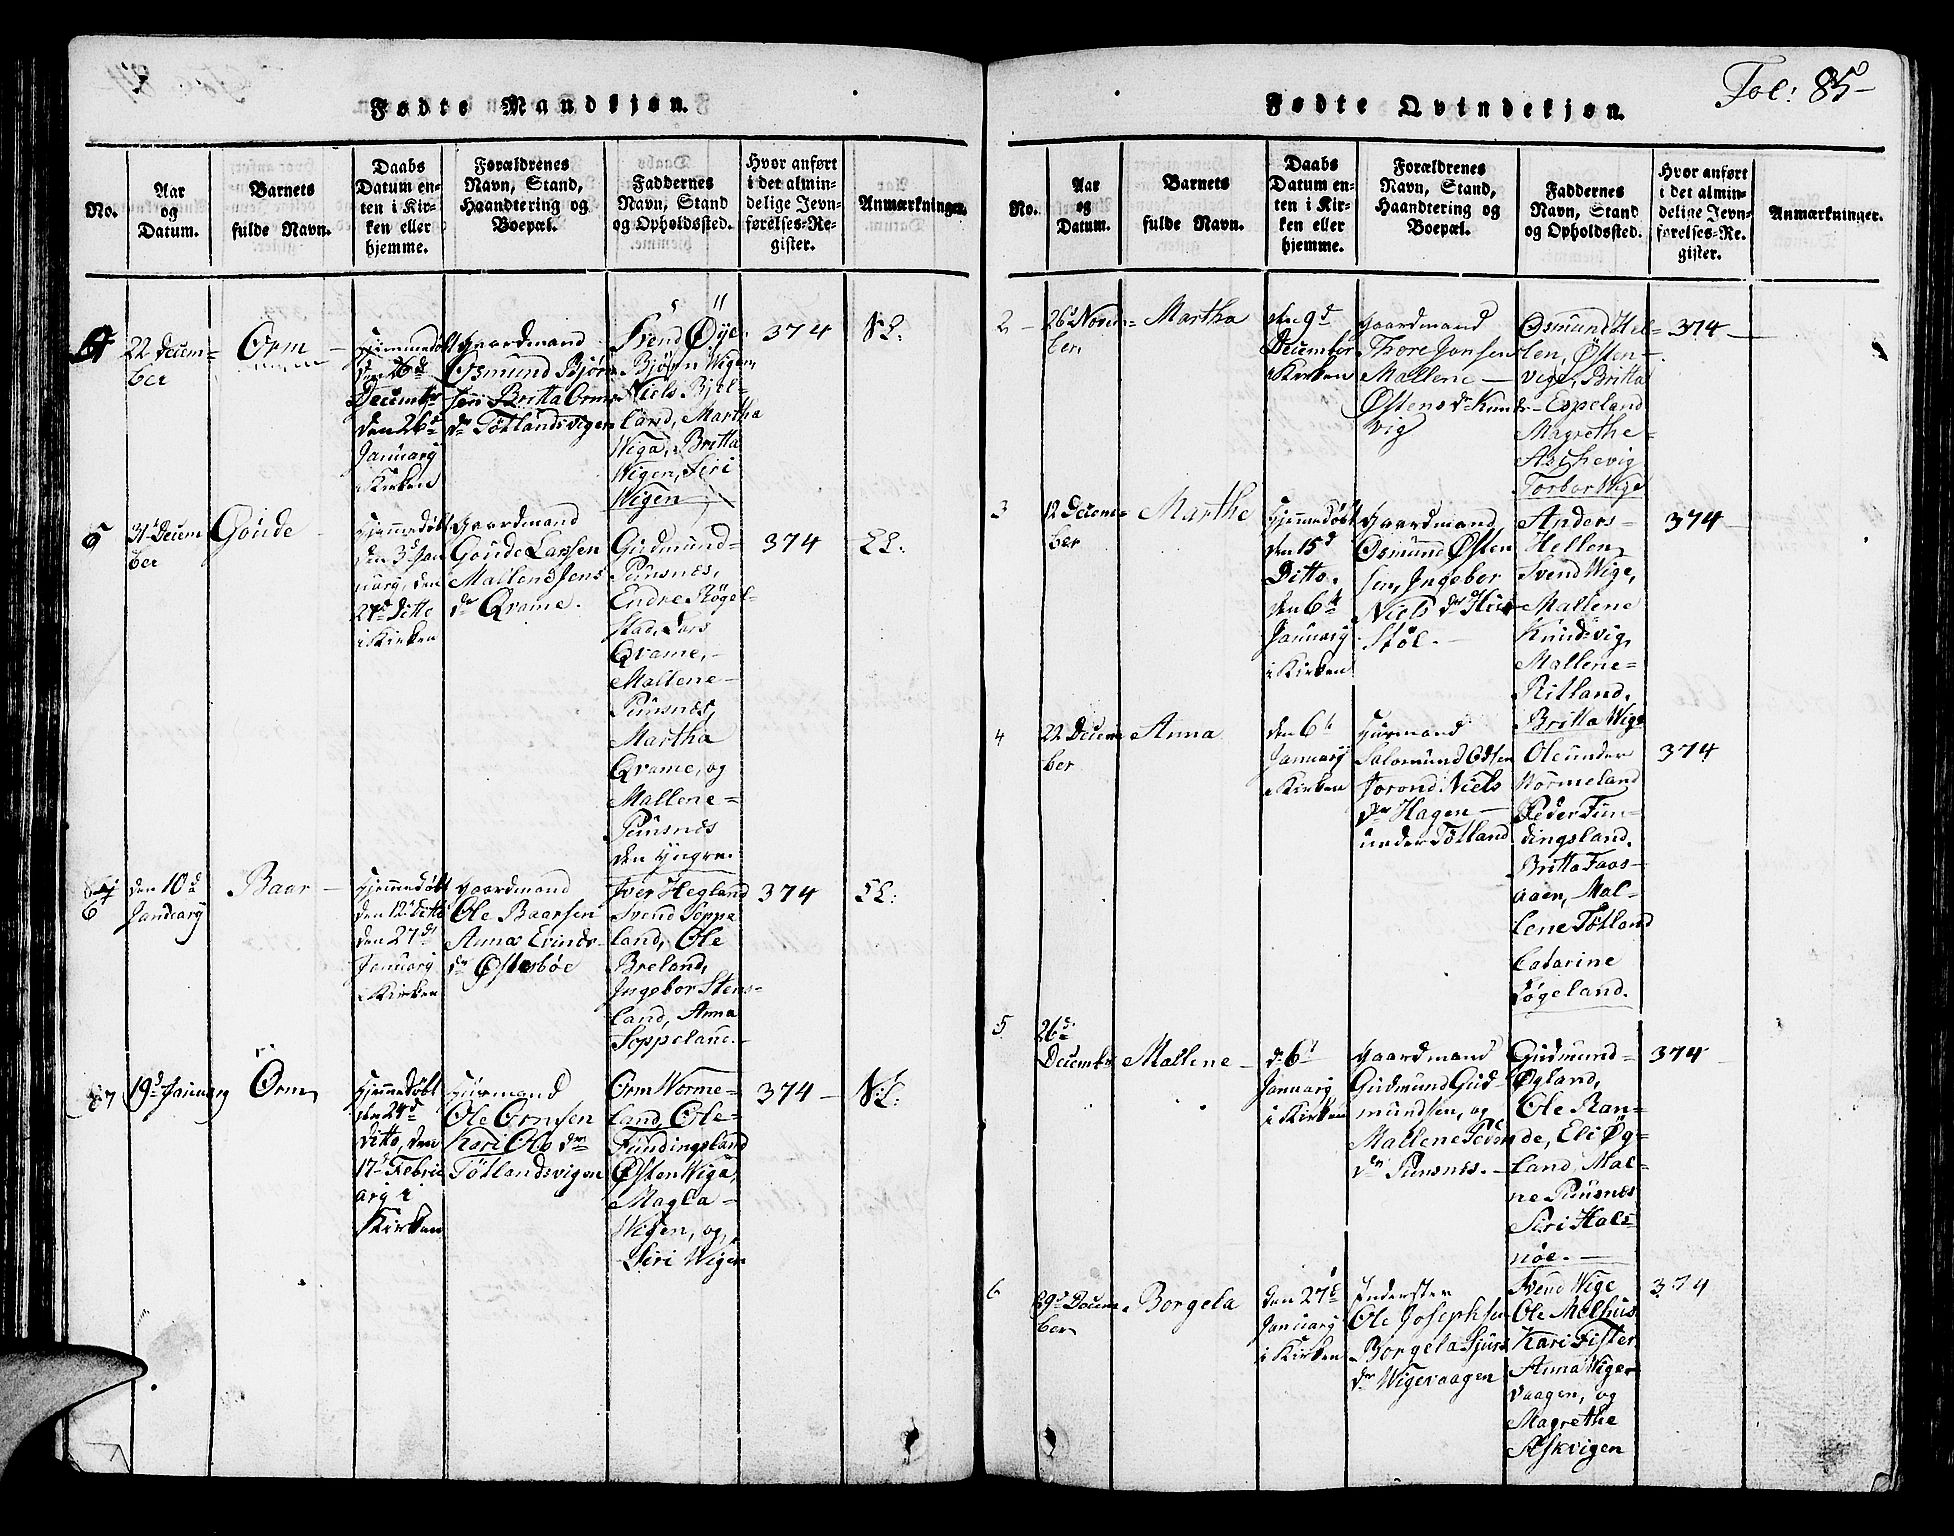 Fol: 85-
Fødte Mandkjøn.
No.
Aar
og
Datum.
Barnets
fulde Navn.
Daabs
Datum en-
ten i Kir-
ken eller
hjemme.
Forældrenes
Navn, Stand,
Haandtering og
Boepæl.
Faddernes
Navn, Stand
og Opholdssted.
Hvor anført
i det almin-
delige Jevn-
førelses-Re-
gister.
Anmærkninger.
22 Decem-
ber
Orm
Hjemmedøbt
den 26d
December
den 26d
Januarÿ
i Kirken
Gaardmand
Osmund Bjørn
sen Britta Orms
dr Tøtlandsvigen
Svend Øÿe.
Bjørn Wigen,
Niels Bjel-
land, Martha
Wiga, Britta
Wigen, Siri
Wigen
374
NL:
5
31 Decem
ber
Goude
Hjemmedøbt
den 3d Jan
uarÿ, den
27d Ditto
i Kirken
Gaardmand
Goude Larsen
Mallene Jens
dr Qvame.
Gudmund-
Punsnes,
Endre Støgel-
stad, Lars
Qvame,
Mallene-
Punsnes,
Martha
Qvame, og
Mallene-
Punsnes
den Yngre.
374
LL:
6
den 10d
Januarÿ
Baar
Hjemmedøbt
den 12d Ditto
den 27d
Januarÿ
i Kirken
Gaardmand
Ole Baarsen
Anna Erinds-
dr Østebøe
Iver Hegland
Svend Soppe
land, Ole
Breland,
Ingebor Stens-
land, Anna
Soppeland.
374
LL:
7
19d Januarÿ
Orm
Hjemmedøbt
den 24d
Ditto, den
17d Februe
arÿ i
Kirken
Huusmand
Ole Ormsen
Kari Ols dr
Tøtlandsvigen
Orm Norme-
land, Ole-
Fundingsland
Østen Wiga,
Magla-
Wigen, og
Siri Wigen
374
NL:
Fødte Qvindekjøn.
No.
Aar
og
Datum.
Barnets
fulde Navn.
Daabs
Datum en-
ten i Kir-
ken eller
hjemme.
Forældrenes
Navn, Stand,
Haandtering og
Boepæl.
Faddernes
Navn, Stand
og Opholdssted.
Hvor anført
i det almin-
delige Jevn-
førelses-Re-
gister.
Anmærkninger.
2
26d Novem-
ber
Martha
den 9d
December
i Kirken
Gaardmand
Thore Jonsen
Mallene
Østens dr Knuds-
vig
Osmund Hel-
len, Østen-
vige, Britta
Espeland
Magrethe-
Aschevig
Torbor Wige
374
3
12 Decem-
ber
Marthe
Hjemmedøbt
den 15d
Ditto.
den 6d
Januarÿ
i Kirken
Gaardmand
Osmund Østen
sen, Ingebor
Niels dr Hus-
støl.
Anders-
Hellen,
Svend Wige,
Mallene
Knudsvig,
Mallene-
Ritland,
Britta Wige
374
4
22 Decem-
ber
Anna
den 6d
Januarÿ
i Kirken
Huusmand
Salomund Odsen
Joron Niels
dr Hagen
under Tøtland
Ole under
Normeland
Peder Fun-
dingsland.
Britta Faas-
aaen, Mal-
lene Tøtland
Catarine
Løgeland.
374
5
26d
December
Mallene
d 6d
Januarÿ
i Kirken
Gaardmand
Gudmund Gud-
mundsen, og
Mallene
dr Punsnes.
Gudmund-
Øgland,
Ole Ran-
de, Eli Øg-
land, Mal-
ne Punsnes
Siri Hals-
nøe.
374
6
29d Decem-
ber
Borgela
den 27d
Januarÿ
i Kirken
Inderster
Ole Josephsen
Borgela Sjurs
dr Wigevaagen
Svend Wige
Ole Melhus
Kari Fister
Anna Wige-
vaagen, og
Magrethe
Askvigen
374